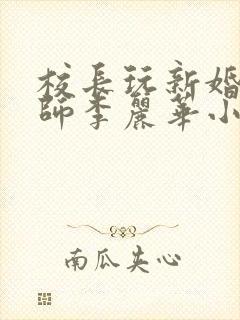 校長玩新婚
師李麗華小
南瓜夹心